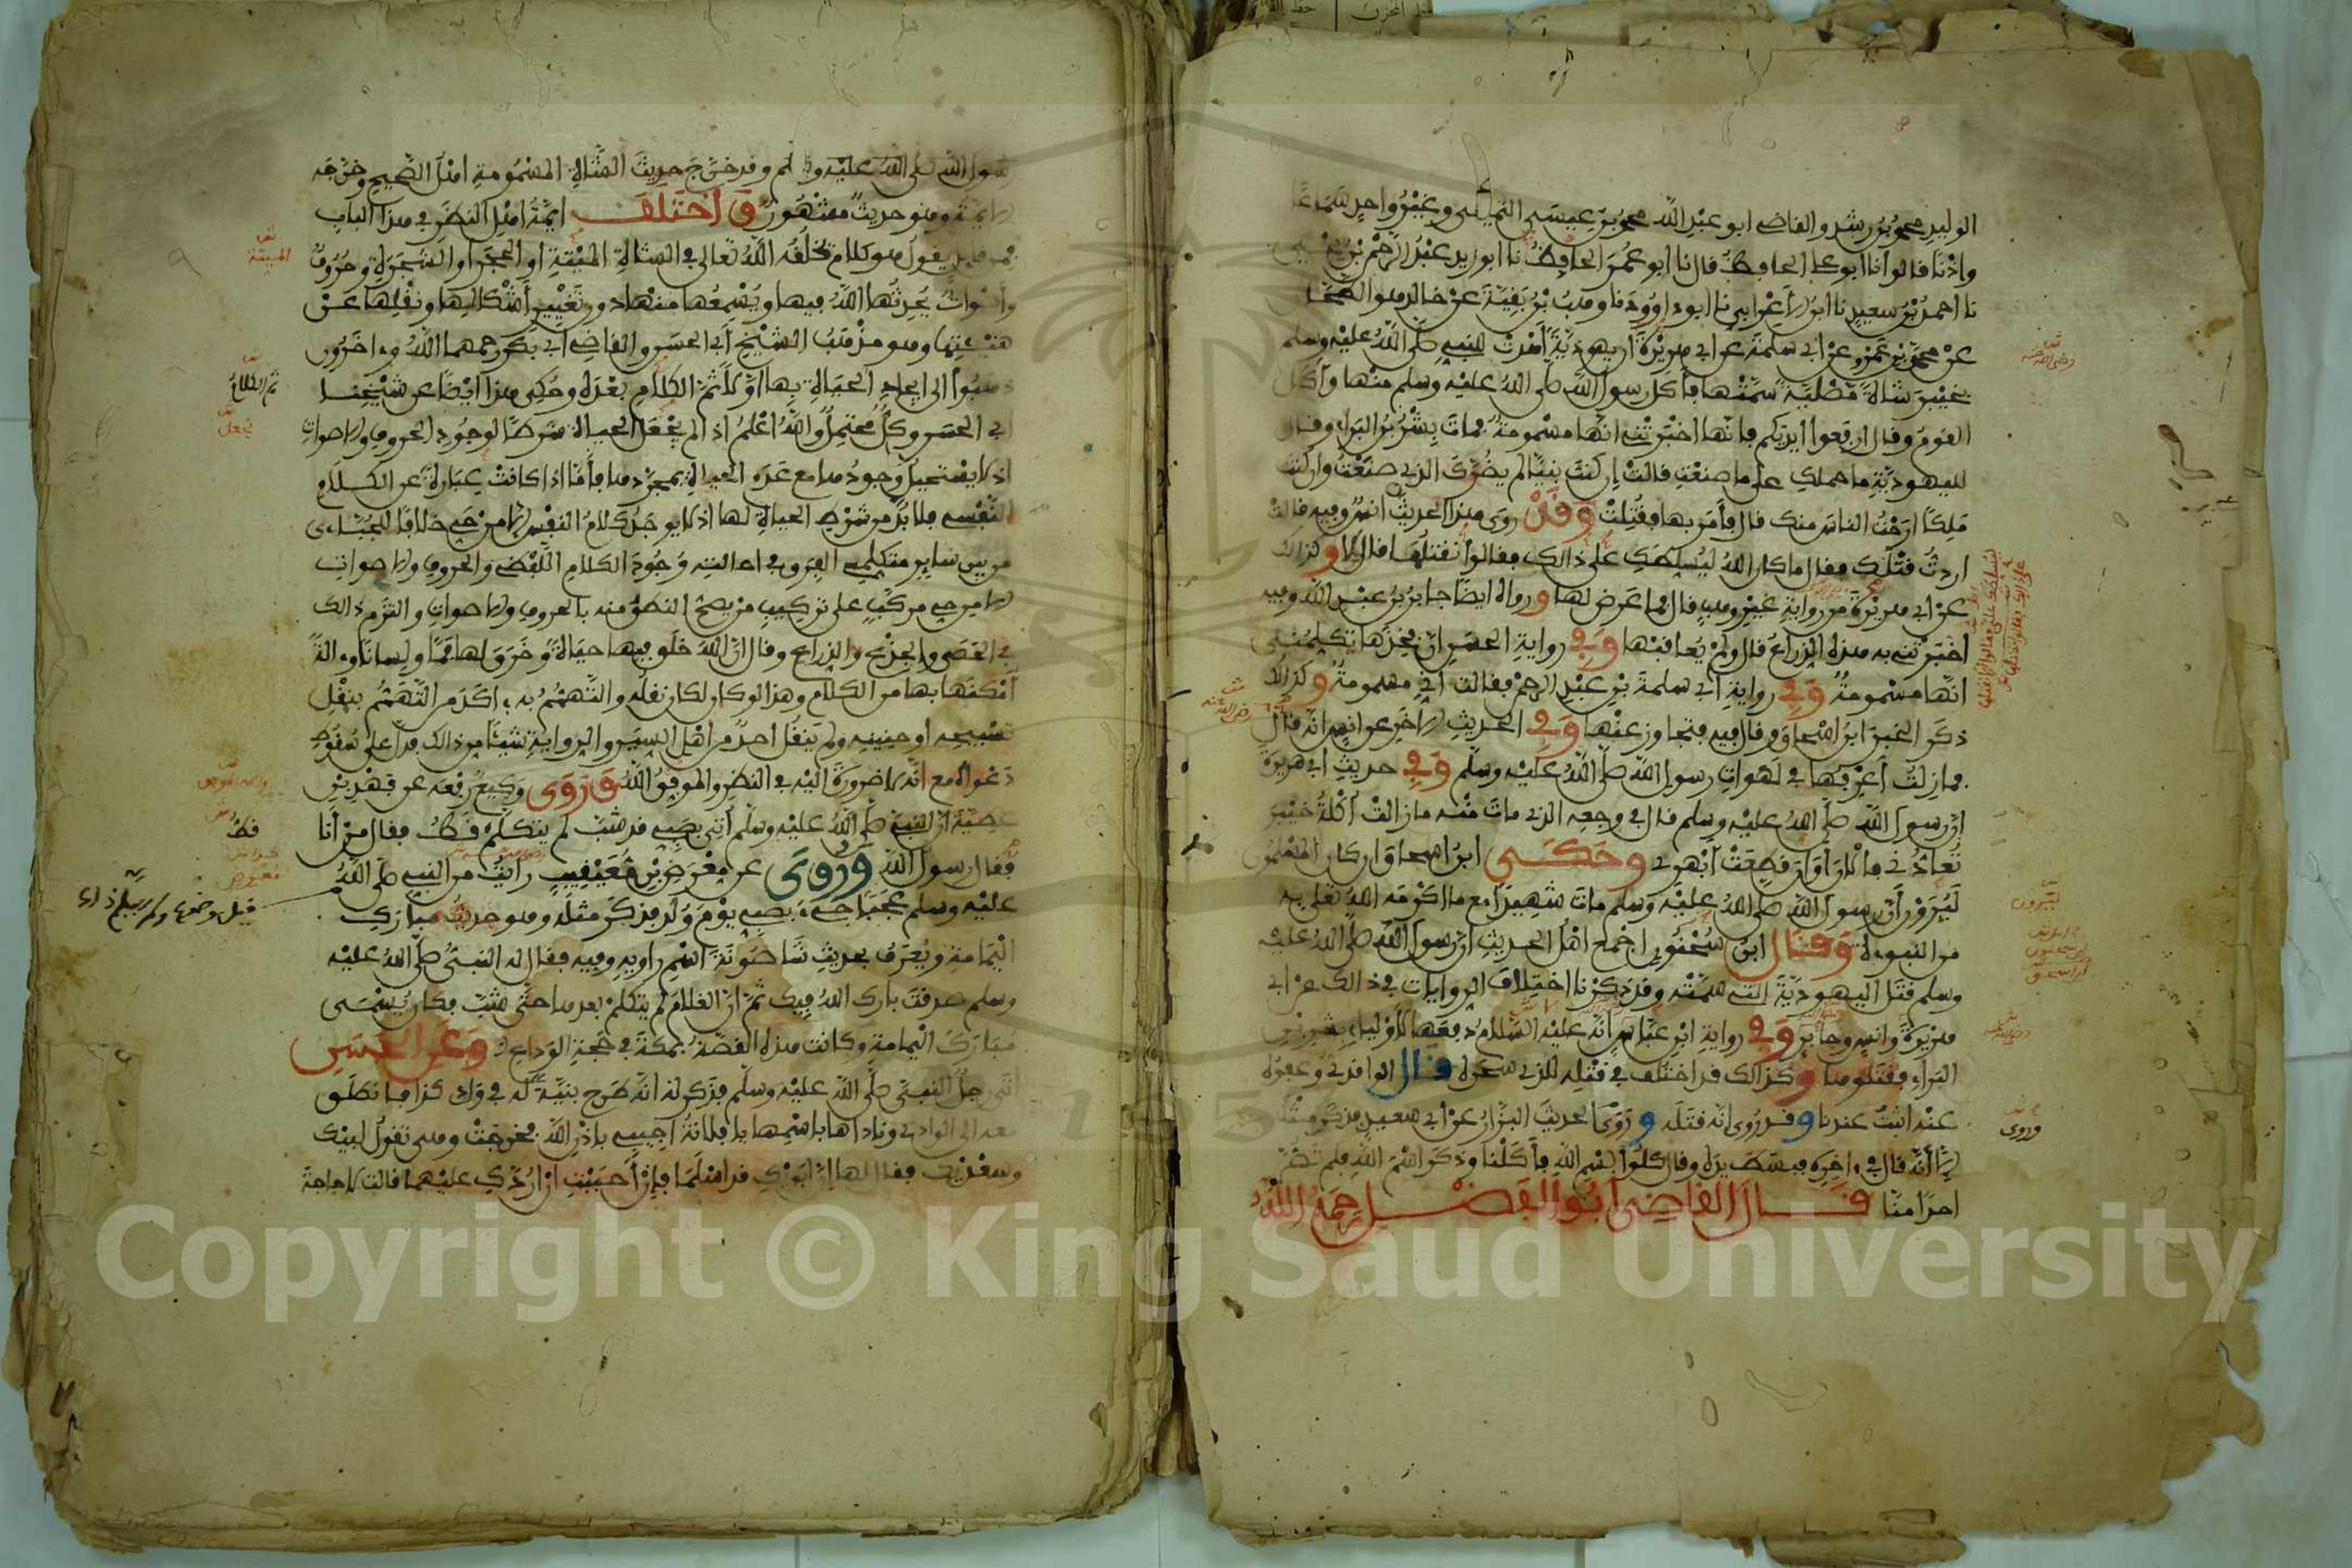 الوليد محمد بن رشد والقاضي ابو عبد الله محمد بن عيسى التميمي وغير واحد سماعا
واذنا قالوا نا ابو علي الحافظ قال نا ابو عمر الحافظ نا ابو زيد عبد الرحمن بن يحيى
نا احمد بن سعيد نا ابن الاعرابي نا ابو داوود نا وهب بن بقية عن خالد هو الطحان
عن محمد بن عمرو عن ابي سلمة عن ابي هريرة ان يهودية أهدت للنبي صلى الله عليه وسلم
بخيبر شاة مصلية سمتها فأكل رسول الله صلى الله عليه وسلم منها وأكل
القوم وقال ارفعوا ايديكم فانها اخبرتني انها مسمومة فمات بشر بن البراء وقال
لليهودية ما حملك على ما صنعت قالت ان كنت نبيا لم يضرك الذي صنعت وان كنت
ملكا ارحت الناس منك قال فأمر بها فقتلت وقد روى هذا الحديث انس وفيه قالت
اردت قتلك فقال ما كان الله ليسلطك على ذالك فقالوا نقتلها قال لا وكذالك
عن ابي هريرة من رواية غير وهب قال فما عرض لها ورواه ايضا جابر بن عبد الله وفيه
اخبرتني به هذه الذراع قال ولم يعاقبها وفي رواية الحسن ان فخذها تكلمني
انها مسمومة وفي رواية ابي سلمة بن عبد الرحمن فقالت اني مسمومة وكذالك
ذكر الخبر ابن اسحاق وقال فيه فتجاوز عنها وفي الحديث الاخر عن انس انه قال
فما زلت أعرفها في لهوات رسول الله صلى الله عليه وسلم وفي حديث ابي هريرة
ان رسول الله صلى الله عليه وسلم قال في وجعه الذي مات منه ما زالت أكلة خيبر
تعادني فالان اوان قطعت أبهري وحكى ابن اسحاق ان كان المسلمون
ليرون أن رسول الله صلى الله عليه وسلم مات شهيدا مع ما اكرمه الله تعلى به
من النبوءة وقال ابن سحنون اجمع اهل الحديث ان رسول الله صلى الله عليه
وسلم قتل اليهودية التي سمته وقد ذكرنا اختلاف الروايات في ذالك عن ابي
هريرة وانس وجابر وفي رواية ابن عباس انه عليه السلام دفعها لأولياء بشر بن
البراء فقتلوها وكذالك قد اختلف في قتله للذي سحره قال الواقدي وعفوه
عنه اثبت عندنا وقد روى انه قتله وروى الحديث البزار عن ابي سعيد فذكر مثله
الا أنه قال في ءاخره فبسط يده وقال كلوا بسم الله فأكلنا وذكر اسم الله فلم تضر
احدا منا قال القاضي أبو الفضل رحمه الله
رضي الله عنه
يرون
وروى
رسول الله صلى الله عليه وسلم وقد خرج حديث الشاة المسمومة اهل الصحيح وخرجه
الايمة وهو حديث مشهور واختلف ايمة اهل النظر في هذا الباب
فمن قايل يقول هو كلام يخلقه الله تعالى في الشاة الميتة او الحجر او الشجرة وحروف
وأصوات يحدثها الله فيها ويسمعها منها دون تغيير أشكالها ونقلها عن
هيئتها وهو مذهب الشيخ أبي الحسن والقاضي أبي بكر رحمهما الله وءاخرون
ذهبوا الى ايجاد الحياة بها اولا ثم الكلام بعده وحكى هذا ايضا عن شيخنا
ابي الحسن وكل محتمل والله اعلم اذ لم يجعل الحياة شرطا لوجود الحروف والاصوات
اذ لا يستحيل وجودها مع عدم الحياة بمجردها فأما اذا كانت عبارة عن الكلام
النفسي فلا بد من شرط الحياة لها اذ لا يوجد كلام النفس الا من حي خلافا للجباءي
من بين ساير متكلمي الفرق في احالته وجود الكلام اللفظي والحروف والاصوات
الا من حي مركب على تركيب من يصح النطق منه بالحروف والاصوات والتزم ذالك
في الحصى والجذع والذراع وقال ان الله خلق فيها حياة وخرق لها فما ولسانا وءالة
أمكنها بها من الكلام وهذا لو كان لكان نقله والتهمم به ءاكد من التهمم بنقل
تسبيحه او حنينه ولم ينقل احد من اهل السير والرواية شيئا من ذالك فدل على سقوط
دعواه مع انه لا ضرورة اليه في النظر والموفق الله وروى وكيع رفعه عن فهد بن
عطية ان النبي صلى الله عليه وسلم أتي بصبي قد شب لم يتكلم قط فقال من أنا
فقال رسول الله وروى عن معرض بن معيقيب رأيت من النبي صلى الله
عليه وسلم عجبا جيء بصبي يوم ولد فذكر مثله وهو حديث مبارك
اليمامة ويعرف بحديث شاصونة اسم راويه وفيه فقال له النبي صلى الله عليه
وسلم صدقت بارك الله فيك ثم ان الغلام لم يتكلم بعدها حتى شب فكان يسمى
مبارك اليمامة وكانت هذه القصة بمكة في حجة الوداع وعن الحسن
اتى رجل النبي صلى الله عليه وسلم فذكر له انه طرح بنية له في وادي كذا فانطلق
معه الى الوادي وناداها باسمها يا فلانة اجيبي باذن الله فخرجت وهي تقول لبيك
وسعديك فقال لها ان ابويك قد اسلما فإن أحببت ان اردك عليهما قالت لا حاجة
الميتة
ثم الكلام
يجعل
قط
Copyright © King Saud University
1957